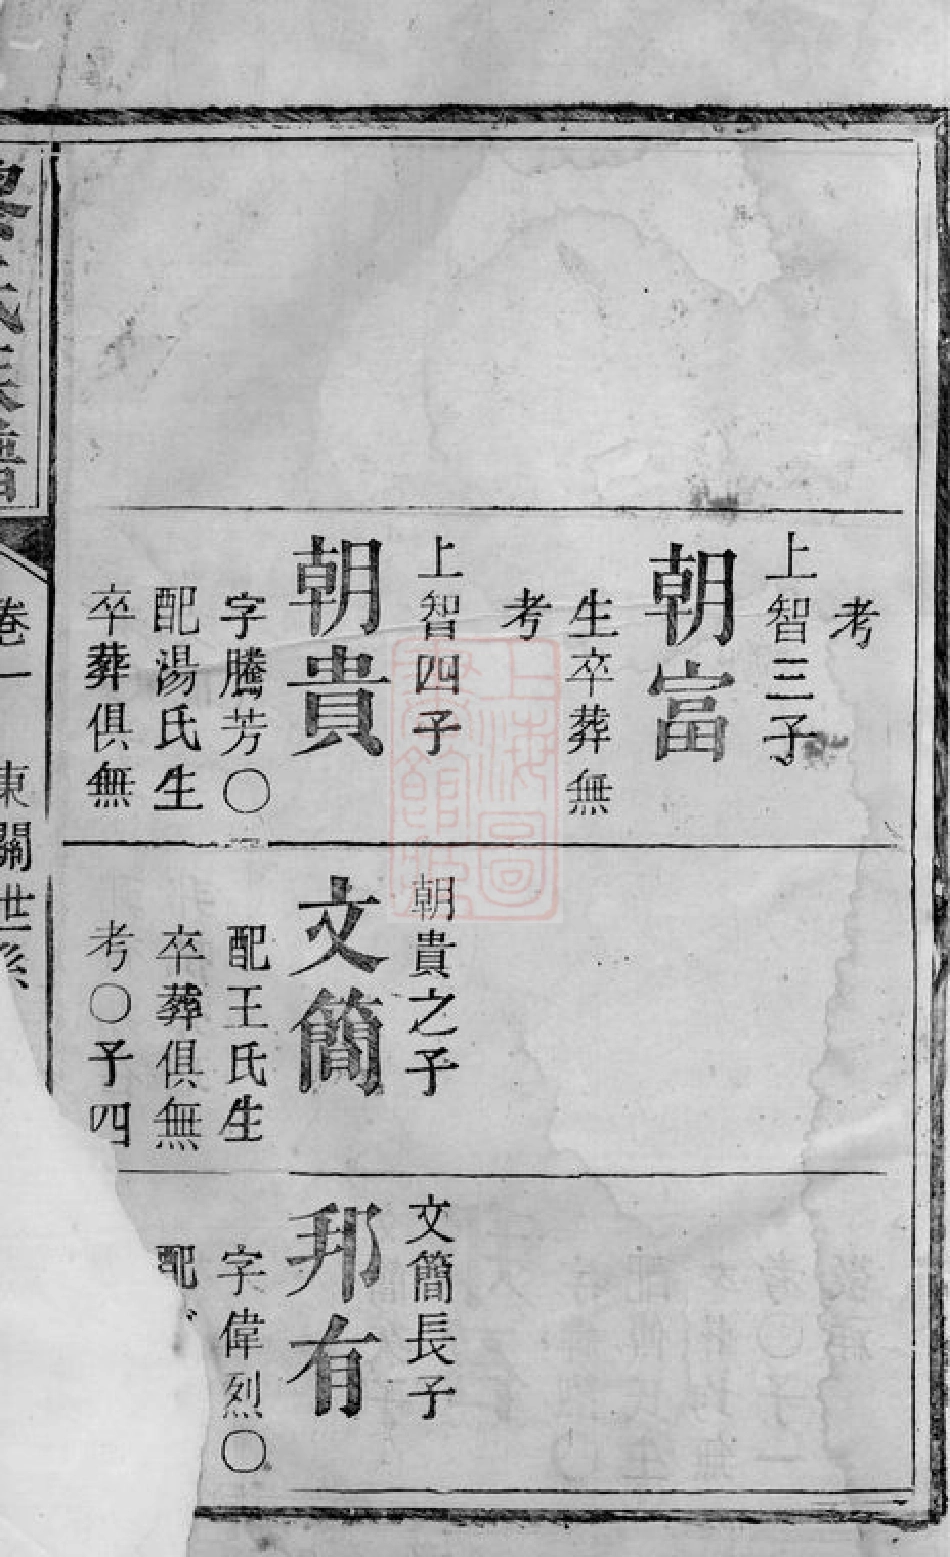 考
上智三子
朝富
生卒葬無
考
上智四子
朝貴
字騰芳〇
配湯氏生
卒葬俱無
朝貴之子
文簡
配王氏生
卒葬俱無
考〇子四
文簡長子
邦有
字偉烈〇
配
氏族譜
卷一
東關世系
上海圖
書館藏